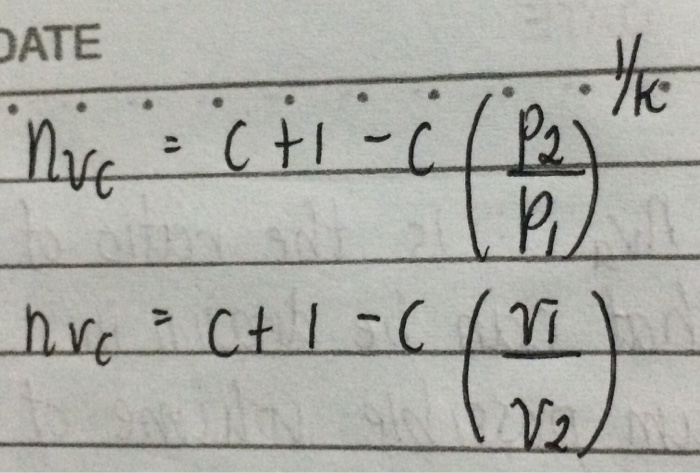 DATE
nvc = c + 1 - c (p2/p1)^1/k
nvc = c + 1 - c (v1/v2)